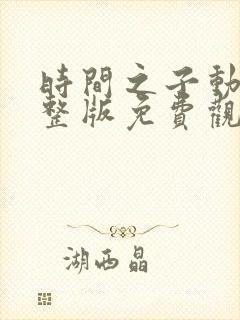 時間之子動
整版免費觀
湖西晶